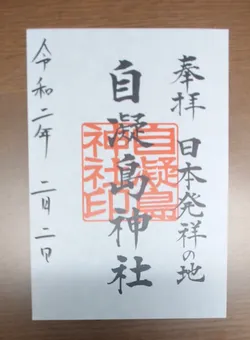 奉拝 日本発祥の地
自凝島神社
自凝島神社印
令和二年 二月二日